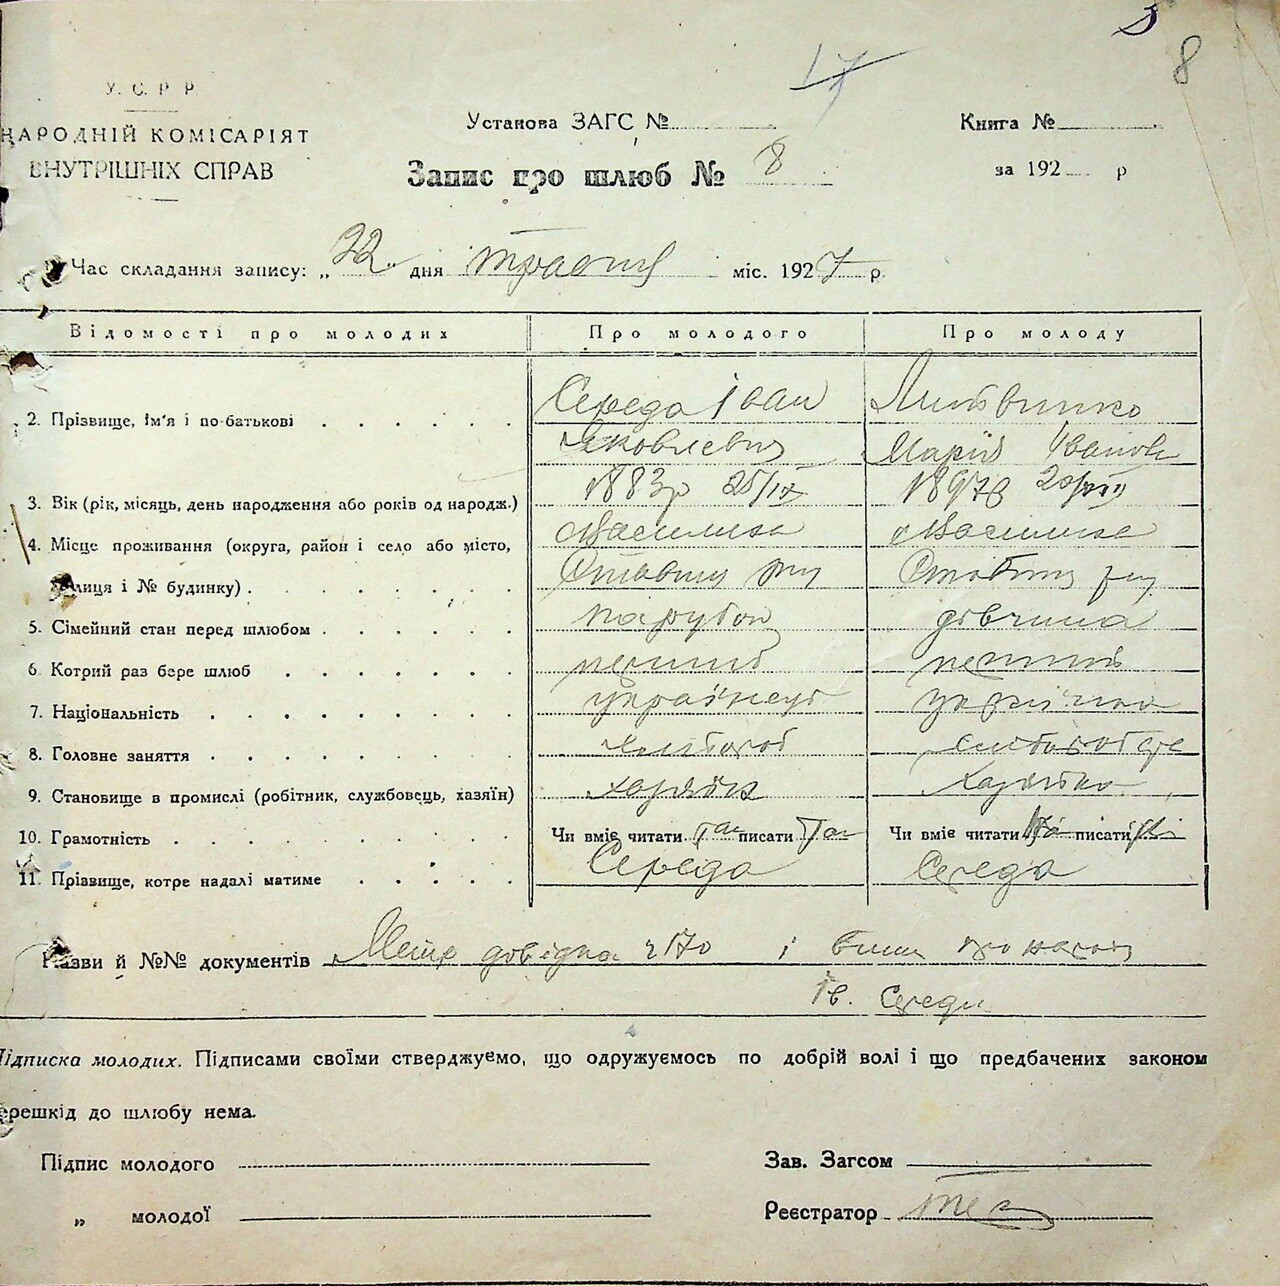 8
17
У. С. Р. Р.
НАРОДНІЙ КОМІСАРІЯТ
ВНУТРІШНІХ СПРАВ
Установа ЗАГС №
Книга №
Запис про шлюб № 8
за 192 р
Час складання запису: „22" дня травня міс. 1927 р
Відомості про молодих Про молодого Про молоду
2. Прізвище, ім'я і по-батькові Середа Іван Литвинко
Яковлевич Марія Іванов
3. Вік (рік, місяць, день народження або років од народж.) 1883р 25/IX 1897р 20/VII
4. Місце проживання (округа, район і село або місто,
вулиця і № будинку)
5. Сімейний стан перед шлюбом парубок дівчина
6. Котрий раз бере шлюб перший перший
7. Національність українець українка
8. Головне заняття хлібороб
9. Становище в промислі (робітник, службовець, хазяїн) хазяїн хазяйка
10. Грамотність Чи вміє читати так писати так Чи вміє читати писати
11. Прізвище, котре надалі матиме Середа Середа
Назви й №№ документів довідка 170 і
Ів. Середи
Підписка молодих. Підписами своїми стверджуємо, що одружуємось по добрій волі і що предбачених законом
перешкід до шлюбу нема.
Підпис молодого
Зав. Загсом
„ молодої
Реєстратор